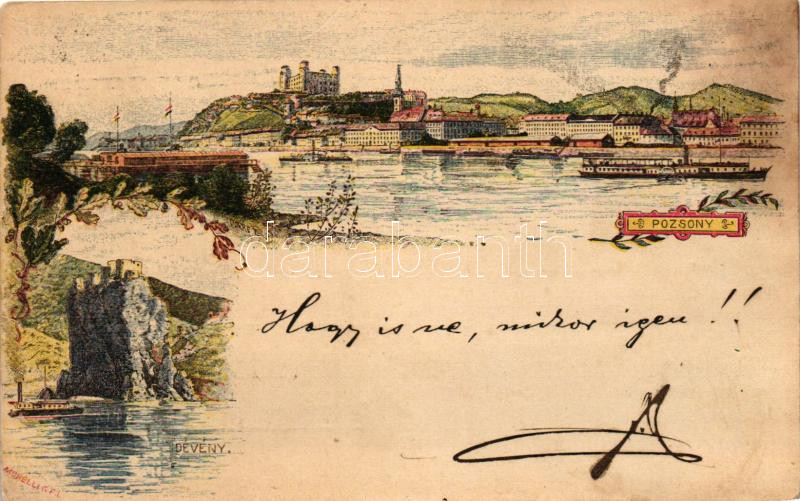 POZSONY
darabanth
Hogy is ne, mikor igen!!
DÉVÉNY.